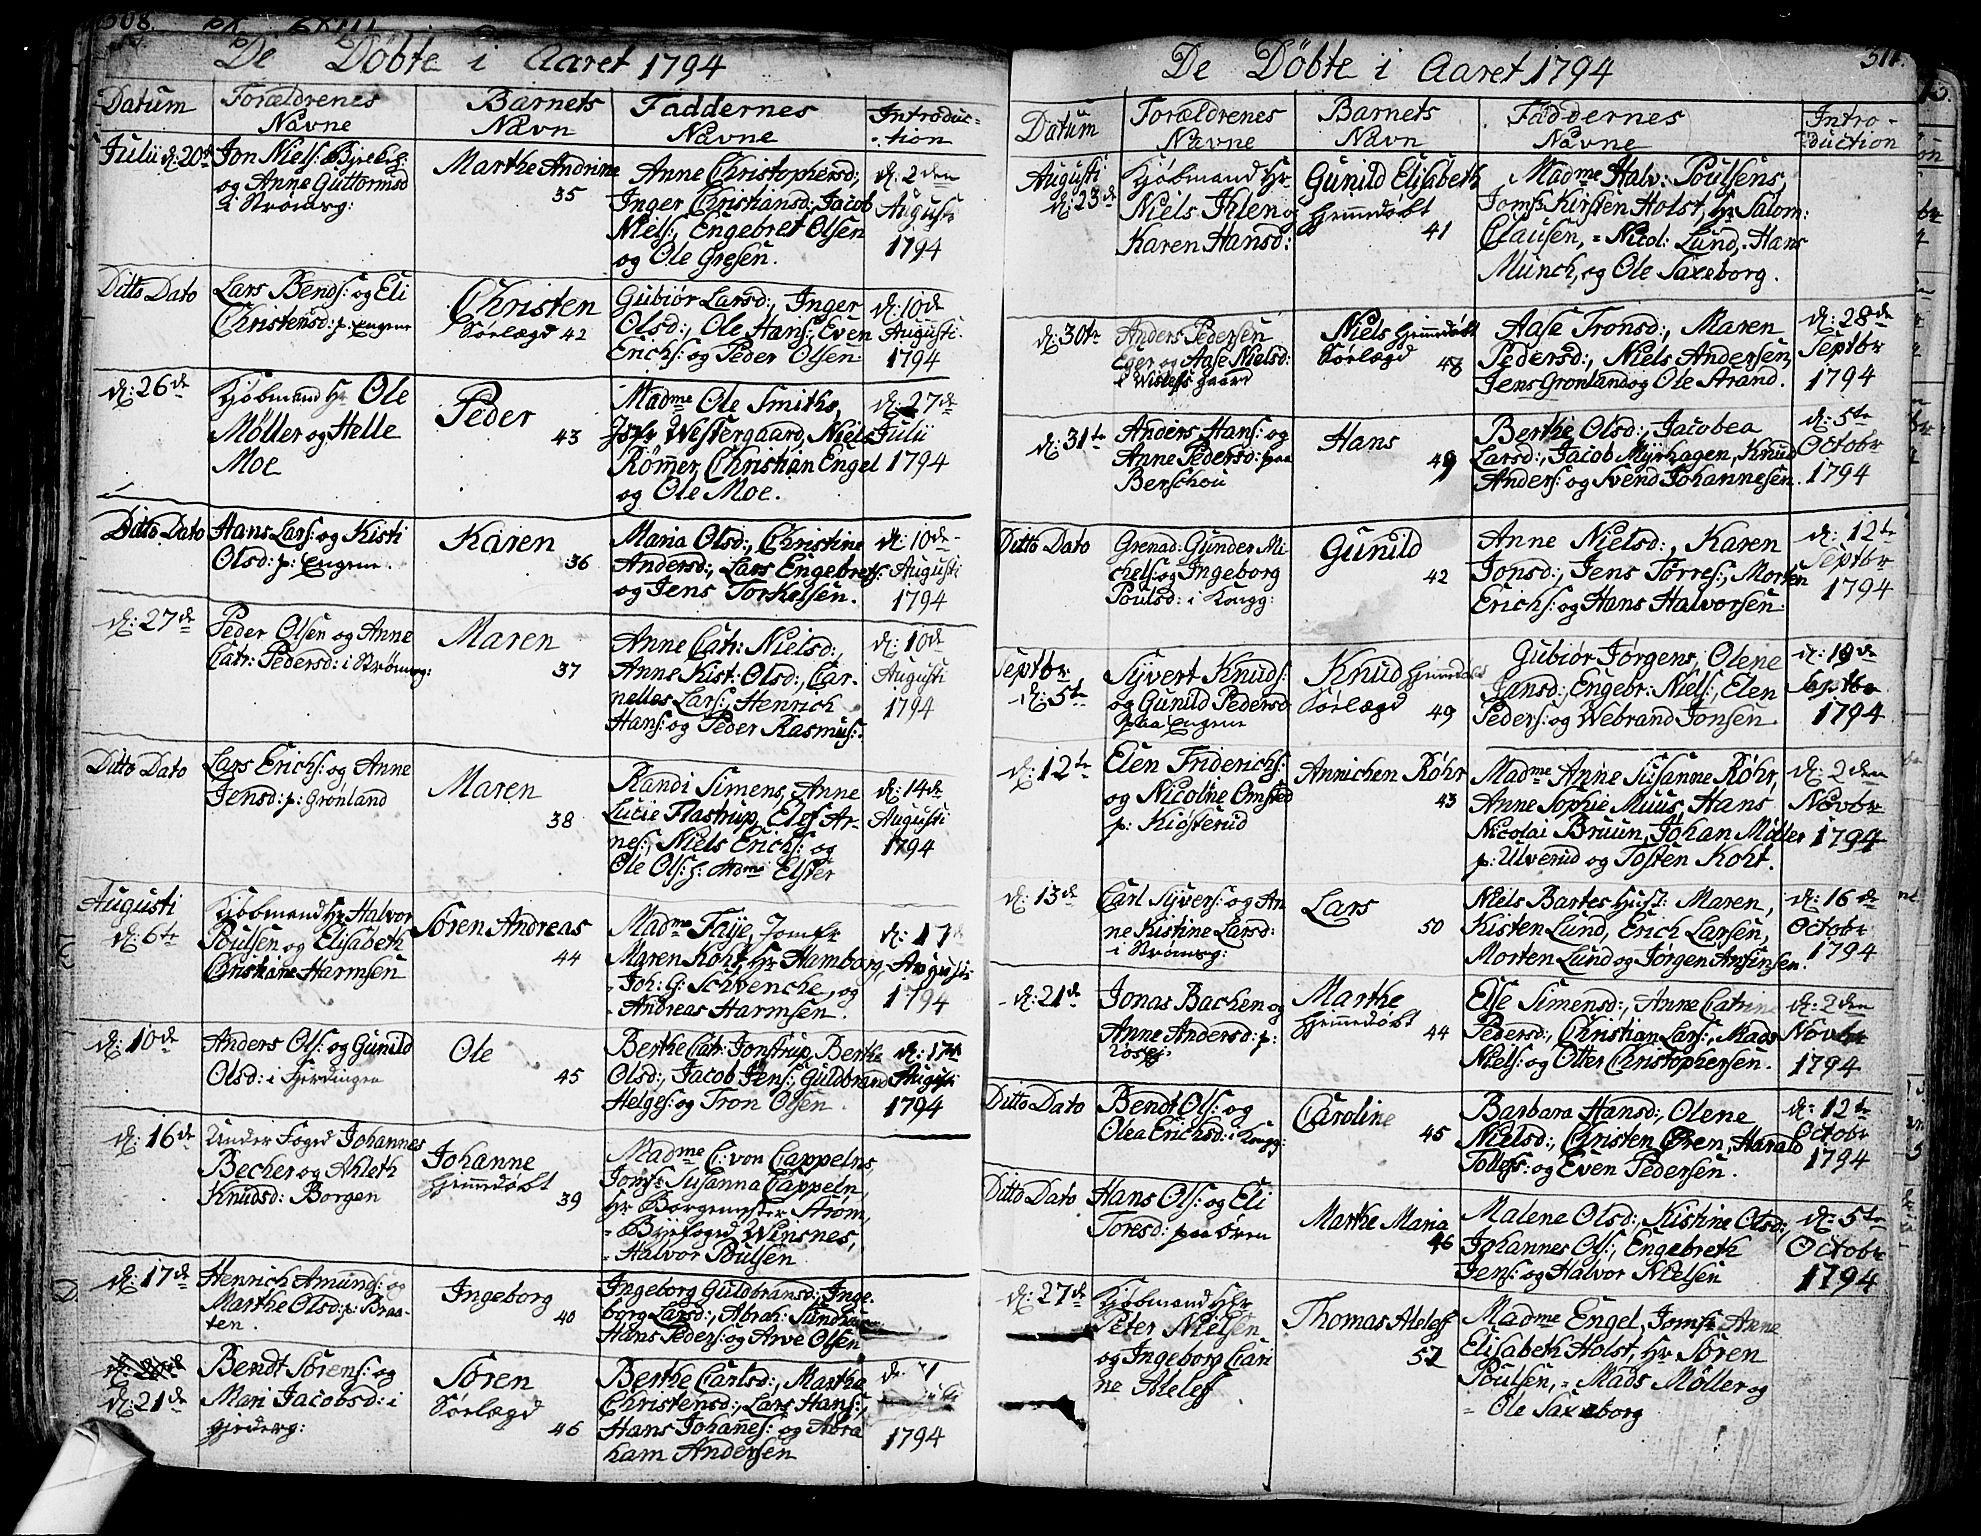 308.
De Döbte i Aaret 1794
Datum
Forældrenes
Navne
Barnets
Navn
Faddernes
Navne
Introduc-
tion
Julii d: 20de
Jon Niels:
og Anne Guttormsd
i Strømsg:
Marthe Andrine
35
Anne Christophersd:,
Inger Christiansd:, Jacob
Niels:, Engebret Olsen
og Ole Gresen.
d: 2den
Augusti
1794
Ditto Dato
Lars Bends: og Eli
Christensd: p: Engene
Christen
Sørlægd 42
Gubiör Larsd:, Inger
Olsd:, Ole Hans:, Even
Erichs: og Peder Olsen
d: 10de
Augusti
1794
d: 26de
Kjöbmand Hr Ole
Möller og Helle
Moe
Peder
43
Madme Ole Smiths,
Jfr Westergaard, Niels
Römer, Christian Engel
og Ole Moe.
d: 27de
Julii
1794
Ditto Dato
Hans Lars: og Kisti
Olsd: p: Engene.
Karen
36
Maria Olsd:, Christine
Andersd:, Lars Engebrets:
og Jens Torkelsen.
d: 10de
Augusti
1794
d: 27de
Peder Olsen og Anne
Catr: Pedersd: i Strømsg:
Maren
37
Anne Catr: Nielsd:,
Anne Kist: Olsd:, Car-
nelles Lars:, Henrich
Hans: og Peder Rasmus:
d: 10de
Augusti
1794
Ditto Dato
Lars Erichs: og Anne
Jensd: p: Grønland
Maren
38
Randi Simens, Anne
Lucie Flastrup, Elef Ar-
nes:, Niels Erichs: og
Ole Ols: h: Madme Elster
d: 14de
Augusti
1794
Augusti
d: 6te
Kjöbmand Hr Halvor
Poulsen og Elisabeth
Christiane Harmsen
Søren Andreas
44
Madme Faije, Jomfr
Maren Koht, Hr Hamborg,
- Joh: G: Schvencke, og
- Andreas Harmsen.
d: 17de
Augusti
1794
d: 10de
Anders Ols: og Gunild
Olsd: i Fjerdingen
Ole
45
Berthe Catr: Jonstrup, Berthe
Olsd:, Jacob Jens:, Guldbrand
Helges: og Tron Olsen.
d: 17de
Augusti
1794
d: 16de
Under Foged Johannes
Becher og Ahleth
Knudsd: Borgen
Johanne
Hjemmedöbt
39
Madme C: von Cappelns,
Jomfr Susanna Cappeln,
Hr Borgemester Strøm,
- Byefoged Winsnes,
- Halvor Poulsen
d: 17de
Henrich Amunds: og
Marthe Olsd: p: Braa-
ten.
Ingeborg
40
Ingeborg Guldbransd:, Inge-
borg Larsd:, Abrah:
Hans Peders: og Arve Olsen
d: 21de
Bendt Sørens: og
Mari Jacobsd: i
Søren
Sørlægd
46
Berthe Carlsd:, Marthe
Christensd:, Lars Hans:,
Hans Johanes: og Abra
ham Andersen
1794
311.
De Döbte i Aaret 1794
Datum
Forældrenes
Navne
Barnets
Navn
Faddernes
Navne
Intro-
duction
Augusti
d: 23de
Kjöbmand Hr
Niels Ihlen og
Karen Hansd:
Gunild Elisabeth
Hjemmedöbt
41
Madme Halv: Poulsens,
Jomfr Kirsten Holst, Hr Salom:
Clausen, - Nicol: Lund, - Hans
Munch, og Ole Saxeborg.
d: 30te
Anders Pedersen
Eger og Aase Nielsd:
Niels Hjemmedöbt
Sørlægd
48
Aase Tronsd:, Maren
Pedersd:, Niels Andersen,
Jens Gronland og Ole Strand.
d: 28de
Septbr
1794
d: 31te
Anders Hans: og
Anne Pedersd: paa
Berschou
Hans
49
Berthe Olsd:, Jacobea
Larsd:, Jacob Myrhagen, Knud
Anders: og Svend Johannesen.
d: 5te
Octobr
1794
Ditto Dato
Grenad: Gunder Mi
chels: og Ingeborg
Poulsd: i Kongg:
Gunild
42
Anne Nielsd:, Karen
Jonsd:, Jens Torres:, Morten
Erichs: og Hans Halvorsen.
d: 12te
Septbr
1794
Septbr
d: 5te
Syvert Knuds:
og Gunild Pedersd
paa Engene
Knud Hjemmedöbt
Sørlægd
49
Gubiör Jørgens, Olene
Jansd:, Engebr: Niels:, Elen
Peders: og Webrand Jonsen
d: 19de
Septbr
1794
d: 12te
Elen Friderichs:
og Nicoline Omsted
p: Kiøsterud
Annichen Röhr
43
Madme Anne Susanne Röhr,
Anne Sophie Muus, Hans
Nicolai Bruun, Johan Möller
p: Ulverud og Tosten Koht.
d: 2den
Novbr
1794
d: 13de
Carl Syvers: og An
ne Kistine Larsd:
i Strømsg:
Lars
50
Niels Bartes Hust: Maren,
Kisten Lund, Erich Larsen,
Morten Lund og Jørgen Ansinsen.
d: 16de
Octobr
1794
d: 21de
Jonas Bachen og
Anne Andersd: p:
Marthe
Hjemmedöbt
44
Else Simensd:, Anne Catrine
Pedersd:, Christian Lars:, Mads
Niels: og Otter Christophersen.
d: 2den
Novbr
1794
Ditto Dato
Bendt Ols: og
Olea Erichsd: i Kongg:
Caroline
45
Barbara Hansd:, Olene
Nielsd:, Christen Øren, Harald
Tollefs: og Even Pedersen.
d: 12te
Octobr
1794
Ditto Dato
Hans Ols: og Eli
Toresd: paa Øren
Marthe Maria
46
Malene Olsd:, Kistine Olsd:,
Johannes Ols:, Engebreth
Jens: og Halvor Nielsen
d: 5te
Octobr
1794
d: 27de
Kjöbmand Hr
Peter Nielsen
og Ingeborg Cari
ne Aleleff
Thomas Aleleff
51
Madme Engel, Jomfr Anne
Elisabeth Holst, Hr Søren
Poulsen, - Mads Møller og
- Ole Saxeborg